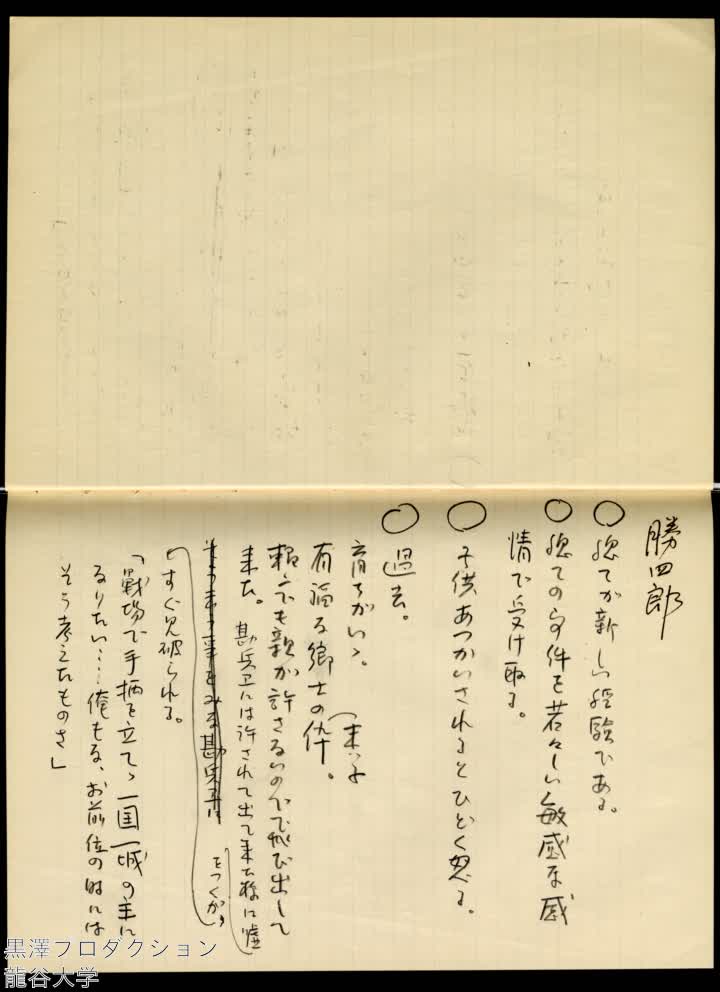 勝四郎
○ 総てが新しい経験である。
○ 総ての事件を若々しい敏感な感
情で受け取る。
○ 子供あつかいされるとひどく怒る。
○ 過去。
育ちがいゝ。
有福な郷士の伜。(末ッ子
頼んでも親が許さないので飛び出して
来た。勘兵卫には許されて出て来た様に嘘
をつくが、
すぐ見破られる。
「戰場で手柄を立てゝ一国一城の主に
なりたい…俺もな、お前位の時には
そう考えたものさ」
黒澤プロダクション
龍谷大学